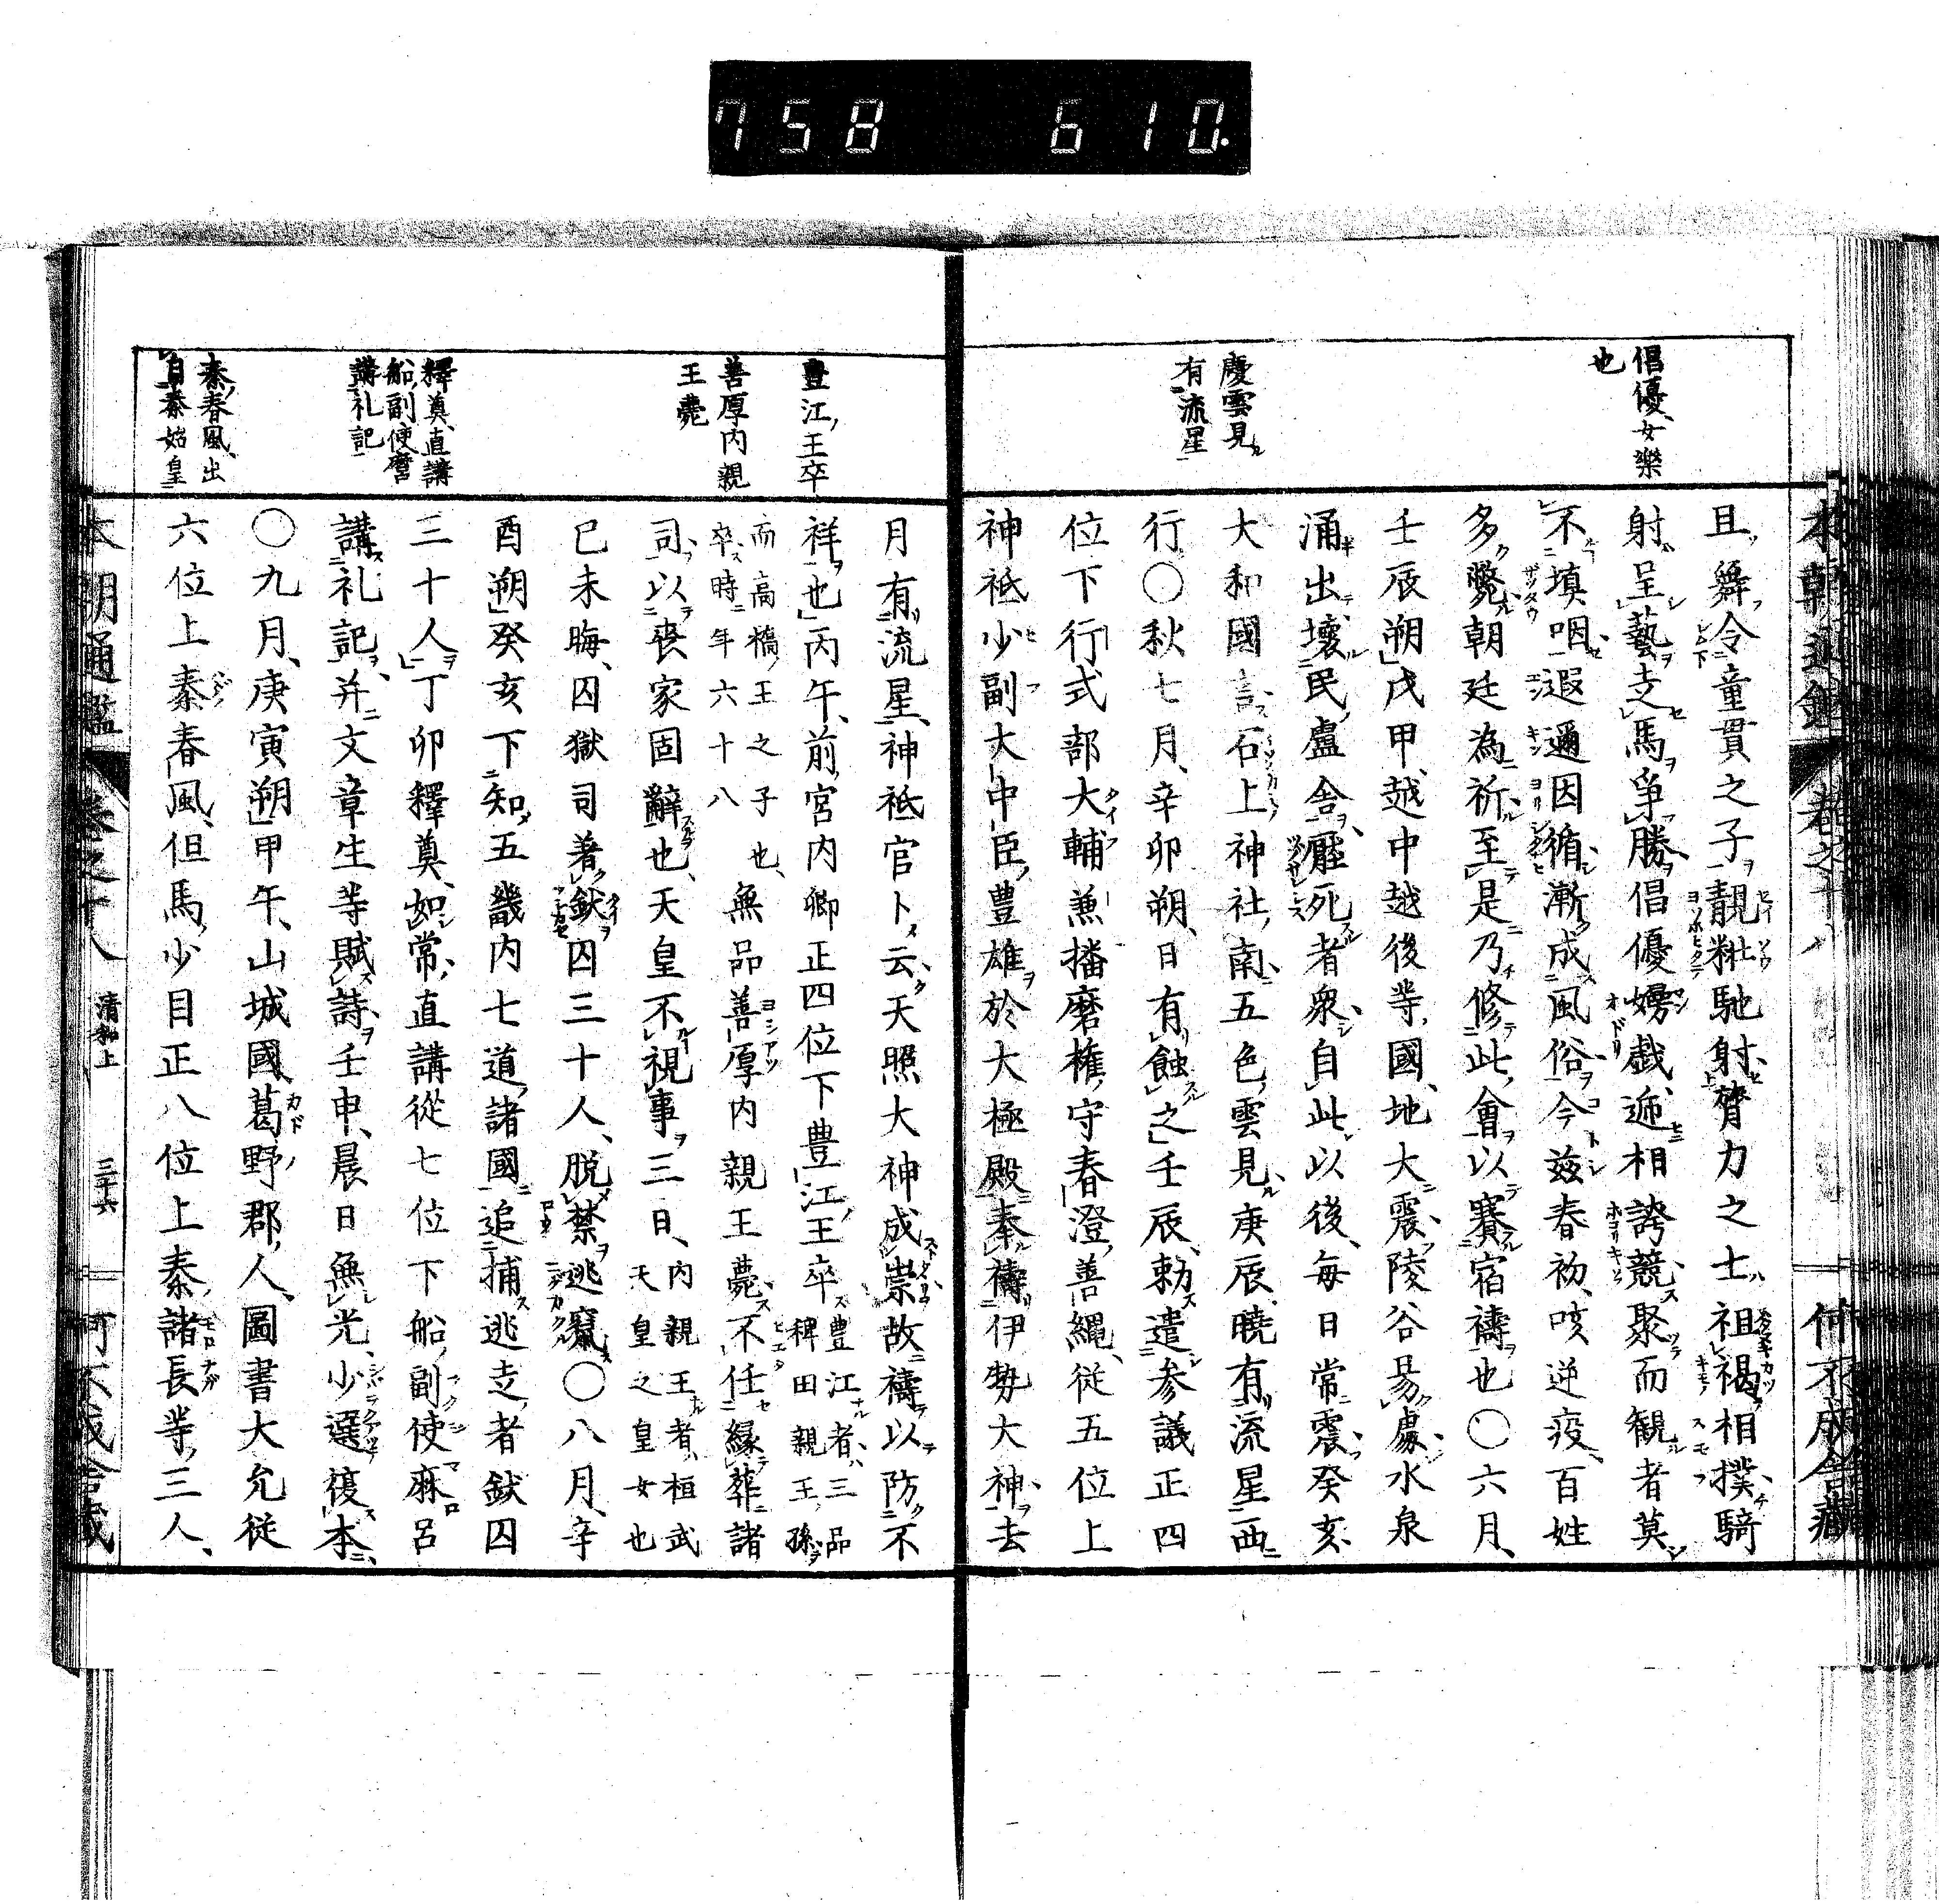 758 610.
倡優、女樂
也
慶雲見
有流星
本朝通鑑 卷之十八
何不成舍藏
且舞令童貫之子靚粧馳射、膂力之士、祖裼相撲、騎
射呈藝走馬爭勝、倡優嫚戲、遞相誇競、聚而観者莫
不填咽、遐邇因循、漸成風俗、今茲春初、咳逆疫、百姓
多斃、朝廷為祈至是乃修此會以賽宿禱也〇六月、
壬辰朔戊甲、越中越後等國、地大震、陵谷易處、水泉
涌出、壞民盧舍、壓死者衆、自此以後、每日常震、癸亥、
大和國言、石上神社南、五色雲見、庚辰曉有流星西
行〇秋七月、辛卯朔、日有蝕之壬辰、勅遣参議正四
位下行式部大輔兼播磨權守春澄善繩、従五位上
神祗少副大中臣豊雄於大極殿奉禱伊勢大神、去
豊江王卒
善厚内親
王薨
釋奠、直講
船副使麿
講礼記
秦春風、出
自秦始皇
月有流星、神祗官卜云、天照大神成祟故禱以防不
祥也丙午、前宮内卿正四位下豊江王卒豊江者、三品
稗田親王孫、
而高橋王之子也、
卒時年六十八
無品善厚内親王薨、不任緣葬諸
司、以喪家固辭也、天皇不視事三日、内親王者、桓武
天皇之皇女也
已未晦、囚獄司著鈦囚三十人、脱禁逃竄〇八月、辛
酉朔癸亥下知五畿内七道諸國追捕逃走者鈦囚
三十人丁卯釋奠、如常、直講從七位下船副使麻呂
講礼記、并文章生等賦詩壬申、晨日無光、少選復本、
〇九月、庚寅朔甲午、山城國葛野郡人、圖書大允従
六位上秦春風、但馬少目正八位上秦諸長等三人、
本朝通鑑 卷之十八 清和上 三十六 何不成舍藏